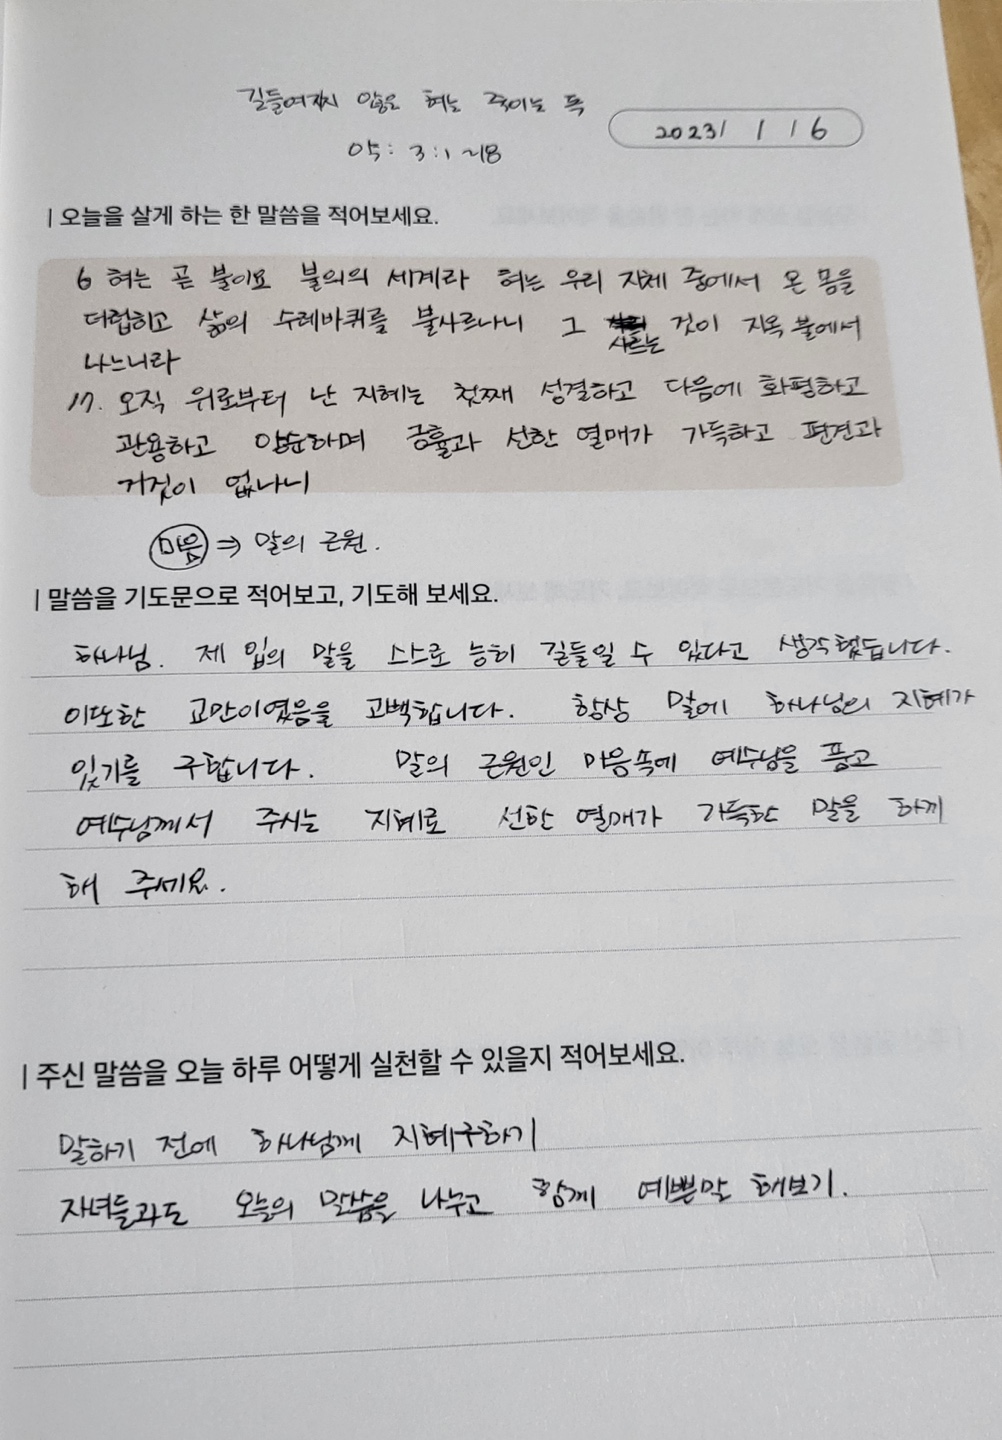 길들여지지 않은 혀는 죽이는 독
2023/ 1 / 6
약: 3:1~18
| 오늘을 살게 하는 한 말씀을 적어보세요.
6 혀는 곧 불이요 불의의 세계라 혀는 우리 지체 중에서 온 몸을
더럽히고 삶의 수레바퀴를 불사르나니 그 사르는 것이 지옥 불에서
나느니라
17. 오직 위로부터 난 지혜는 첫째 성결하고 다음에 화평하고
관용하고 양순하며 긍휼과 선한 열매가 가득하고 편견과
거짓이 없나니
마음 ⇒ 말의 근원.
| 말씀을 기도문으로 적어보고, 기도해 보세요.
하나님. 제 입의 말을 스스로 능히 길들일 수 있다고 생각했습니다.
이또한 교만이였음을 고백합니다. 항상 말에 하나님의 지혜가
있기를 구합니다. 말의 근원인 마음속에 예수님을 품고
예수님께서 주시는 지혜로 선한 열매가 가득한 말을 하게
해 주세요.
| 주신 말씀을 오늘 하루 어떻게 실천할 수 있을지 적어보세요.
말하기 전에 하나님께 지혜구하기
자녀들과도 오늘의 말씀을 나누고 함께 예쁜말 해보기.